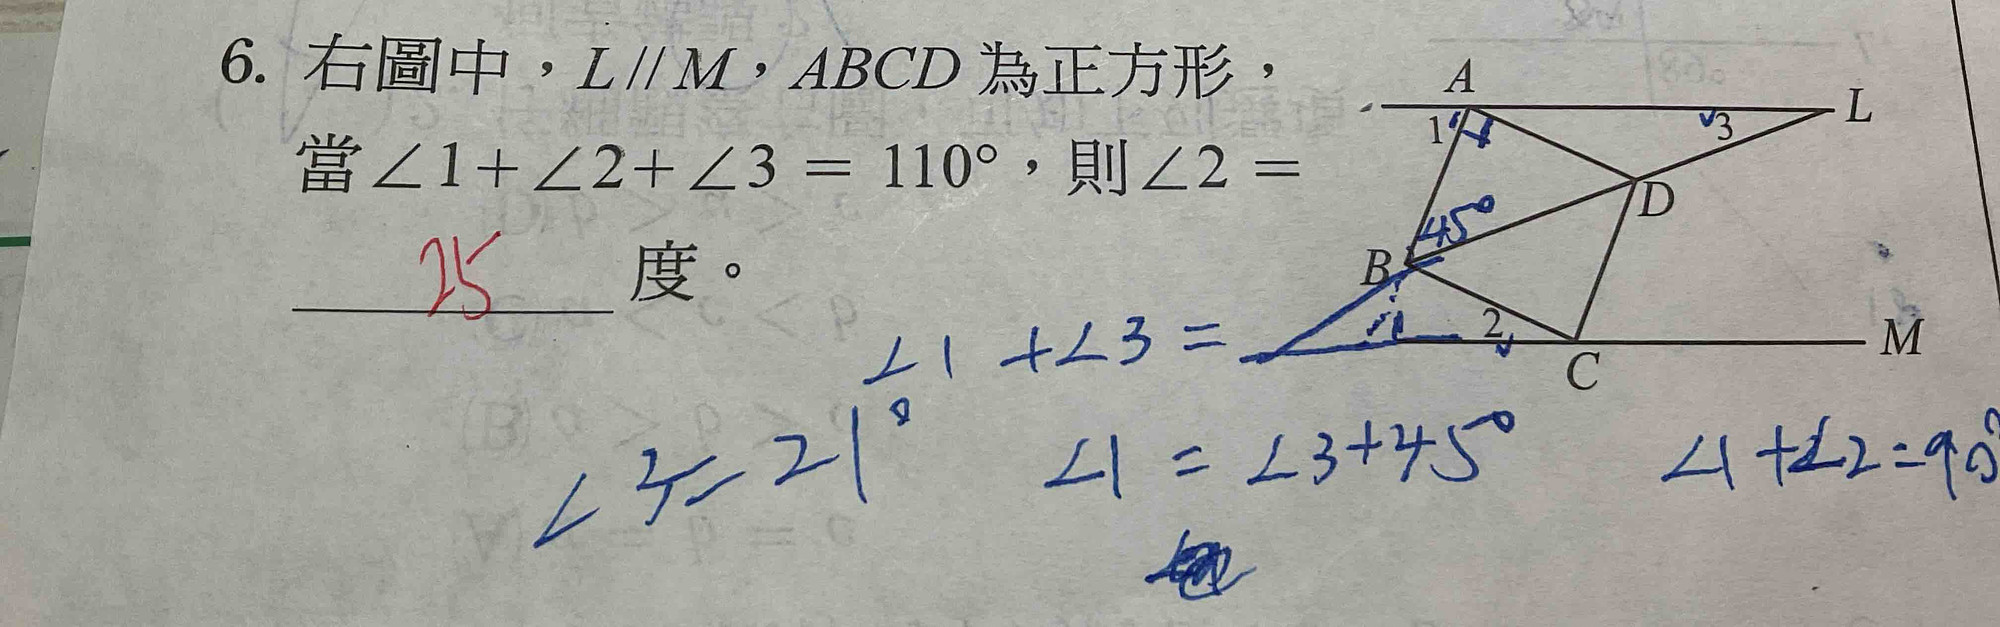 6. 右圖中，L//M，ABCD 為正方形，
當∠1+∠2+∠3 = 110°，則∠2 =
25 度。
A
L
1
3
45°
D
B
2
C
M
∠1 +∠3 =
∠1 = ∠3+45°
∠1 +∠2=90°